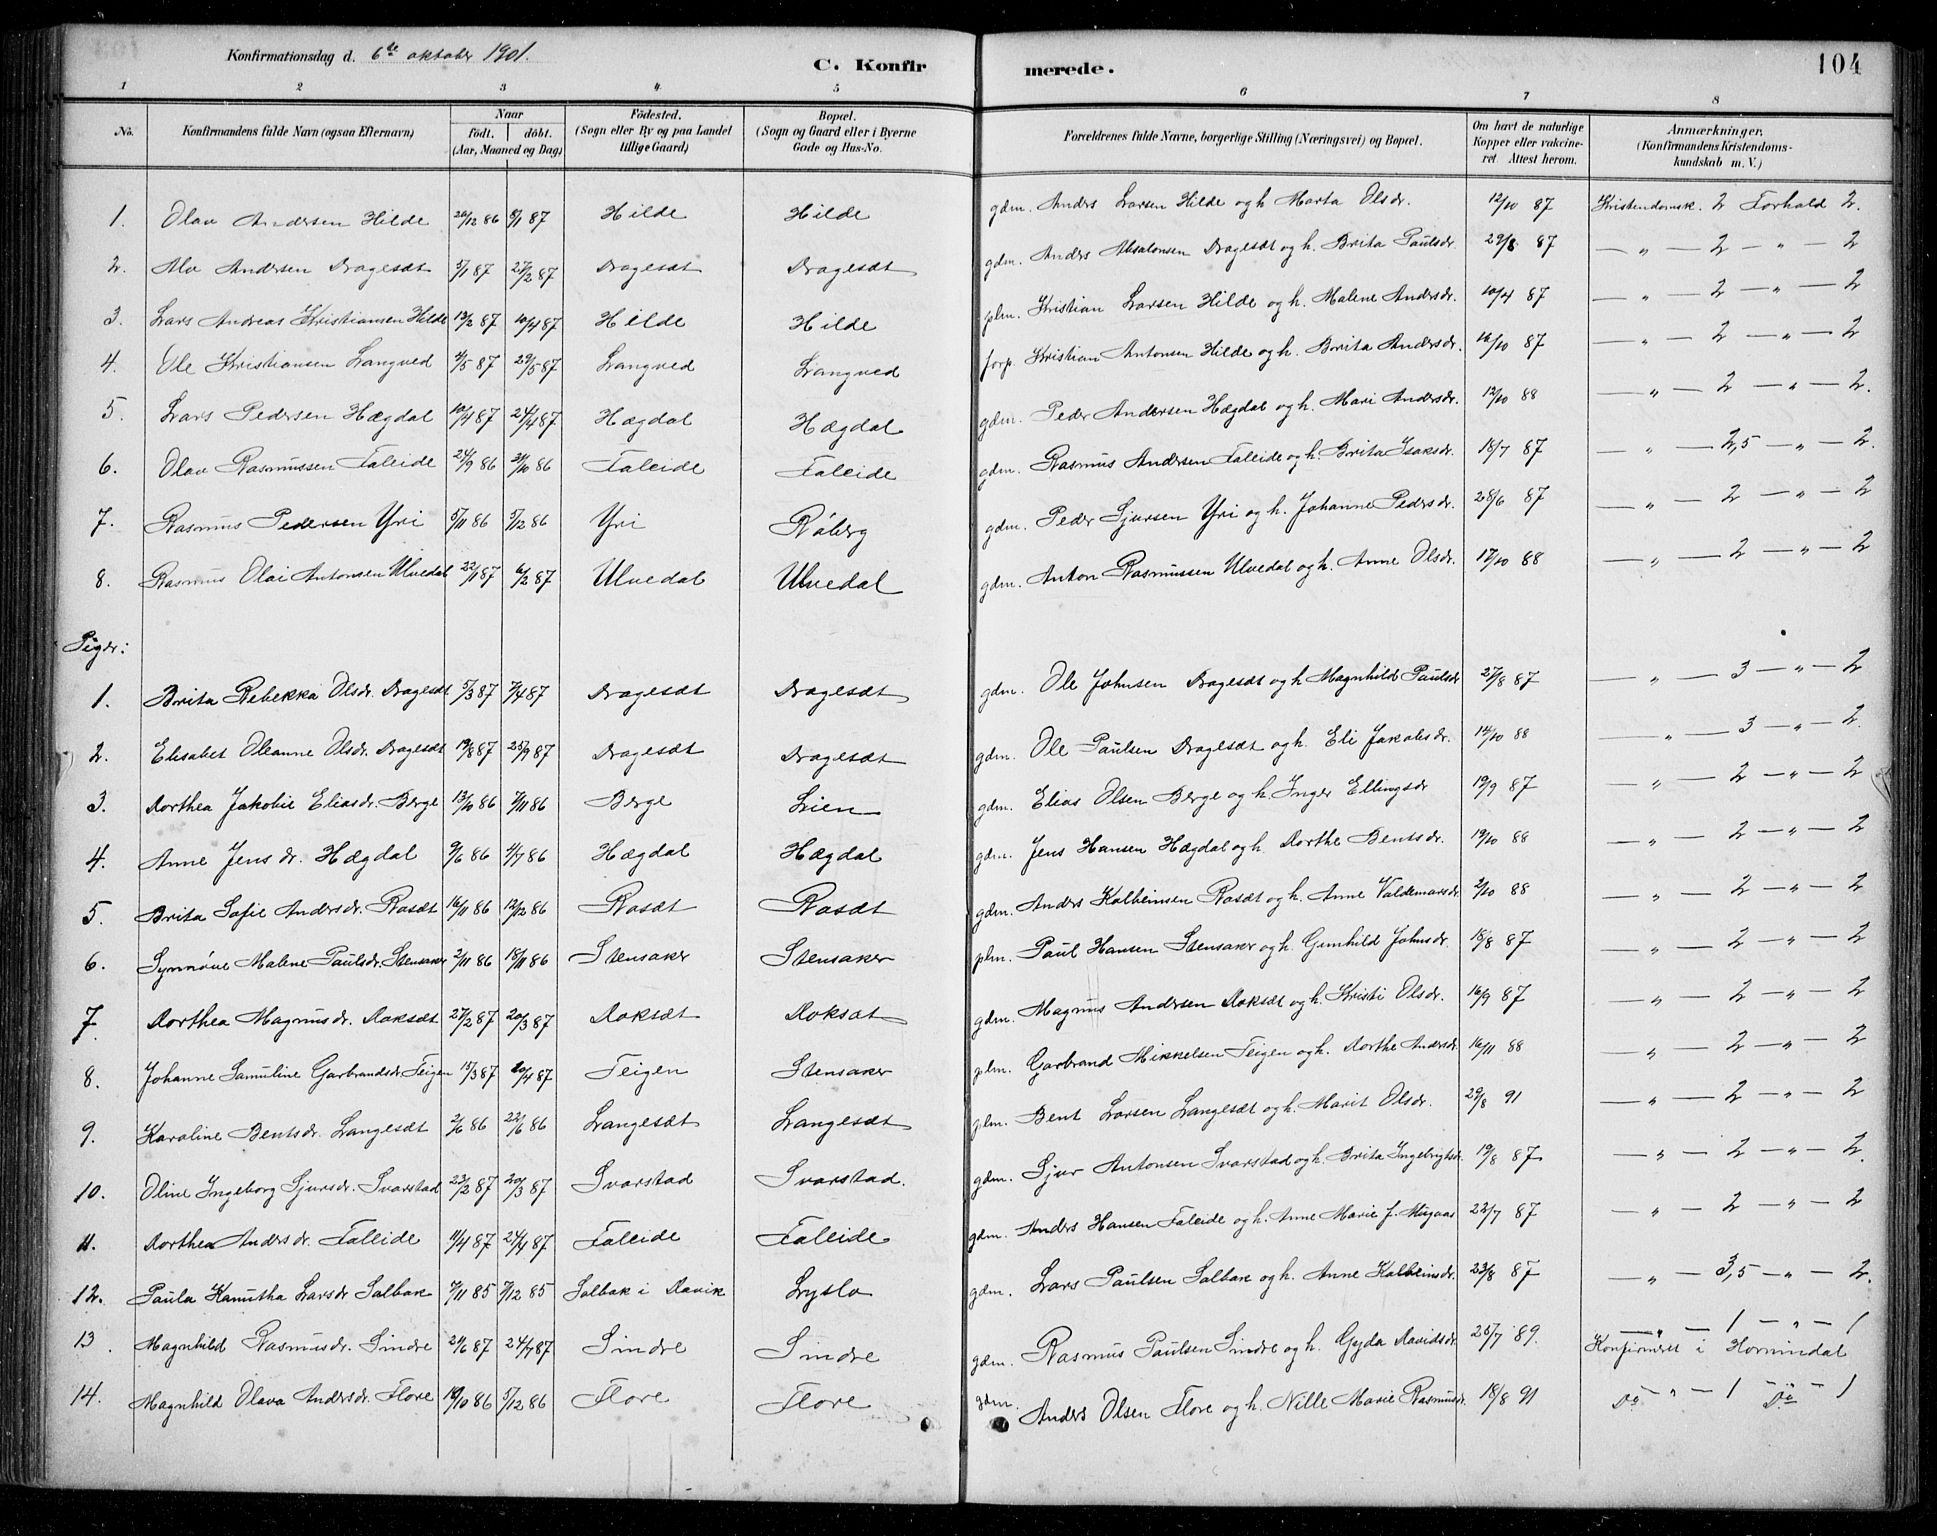 Konfirmationsdag d. 6te oktober 1901.
C. Konfirmerede.
104
1 2 3 4 5 6 7 8
No. Konfirmandens fulde Navn (ogsaa Efternavn) Naar födt. döbt. (Aar, Maaned og Dag) Födested. (Sogn eller By og paa Landet tillige Gaard) Bopæl. (Sogn og Gaard eller i Byerne Gade og Hus-No. Forældrenes fulde Navne, borgerlige Stilling (Næringsvei) og Bopæl. Om havt de naturlige Kopper eller vakcineret. Attest herom. Anmærkninger, (Konfirmandens Kristendomskundskab m. V.)
1. Olav Andersen Hilde 26/12 86 87 Hilde Hilde gdm. Anders Larsen Hilde og h. Marta Olsdr. 12/10 87 Kristendomsk. 2 Forhold 2.
2. Ala Andersen Dragesæt 5/1 87 27/2 87 Dragesæt Dragesæt gdm. Anders Absalonsen Dragesæt og h. Brita Paulsdr. 29/8 87 — „ — 2 — „ — 2
3. Lars Andreas Kristiansen Hilde 13/2 87 10/4 87 Hilde Hilde plm. Kristian Larsen Hilde og h. Malene Andersdr. 10/4 87 — „ — 2 — „ — 2
4. Ole Kristiansen Langved 4/5 87 29/5 87 Langved Langved forp. Kristian Antonsen Hilde og h. Brita Andersdr. 16/10 87 — „ — 2 — „ — 2
5. Lars Pedersen Hægdal 10/4 87 24/4 87 Hægdal Hægdal gdm. Peder Andersen Hægdal og h. Mari Andersdr. 12/10 88 — „ — 2 — „ — 2.
6. Olav Rasmussen Faleide 24/9 86 31/10 86 Faleide Faleide gdm. Rasmus Andersen Faleide og h. Brita Isaksdr. 18/7 87 — „ — 2,5 — „ — 2.
7. Rasmus Pedersen Yri 5/11 86 5/12 86 Yri Röberg gdm. Peder Sjursen Yri og h. Johanne Pedersdr. 28/6 87 — „ — 2 — „ — 2
8. Rasmus Olai Antonsen Ulvedal 22/1 87 6/2 87 Ulvedal Ulvedal gdm. Anton Rasmussen Ulvedal og h. Anne Olsdr. 17/10 88 — „ — 2 — „ — 2
Piger:
1. Brita Rebekka Olsdr. Dragesæt 5/3 87 7/4 87 Dragesæt Dragesæt gdm. Ole Johnsen Dragesæt og h. Magnhild Paulsdr 27/8 87 — „ — 3 — „ — 2
2. Elisabet Oleanne Olsdr. Dragesæt 19/8 87 25/9 87 Dragesæt Dragesæt gdm. Ole Paulsen Dragesæt og h. Eli Jakobsdr. 14/10 88 — „ — 3 — „ — 2.
3. Dorthea Jakobie Eliasdr. Berge 13/10 86 7/11 86 Berge Lien gdm. Elias Olsen Berge og h. Inger Ellingsdr 19/9 87 — „ — 2 — „ — 2
4. Anne Jensdr. Hægdal 9/6 86 4/7 86 Hægdal Hægdal gdm. Jens Hansen Hægdal og h. Dorthe Bentsdr. 19/10 88 — „ — 2 — „ — 2
5. Brita Sofie Andersdr. Rasæt 16/11 86 12/12 86 Rasæt Rasæt gdm. Anders Kolbeinsen Rasæt og h. Anne Valdemarsdr 2/10 88 — „ — 2 — „ — 2
6. Synnöve Malene Paulsdr. Stensaker 2/11 86 18/11 86 Stensaker Stensaker plm. Paul Hansen Stensaker og h. Gunhild Johnsdr. 18/8 87 — „ — 2 — „ — 2
7. Dorthea Magnusdr. Doksæt 27/2 87 20/3 87 Doksæt Doksæt gdm. Magnus Andersen Doksæt og h. Kristi Olsdr. 16/9 87 — „ — 2 — „ — 2
8. Johanne Samuline Garbrandsdr. Teigen 15/3 87 20/4 87 Teigen Stensaker plm. Garbrand Mikkelsen Teigen og h. Dorthe Andersdr. 16/11 88 — „ — 2 — „ — 2
9. Karoline Bentsdr. Langesæt 2/6 86 22/6 86 Langesæt Langesæt plm. Bent Larsen Langesæt og h. Marit Olsdr. 29/8 91 — „ — 2 — „ — 2
10. Oline Ingeborg Sjursdr. Svarstad 23/2 87 20/3 87 Svarstad Svarstad. gdm. Sjur Antonsen Svarstad og h. Brita Ingebrigtsdr. 19/8 87 — „ — 2 — „ — 2.
11. Dorthea Andersdr. Faleide 11/4 87 24/4 87 Faleide Faleide gdm. Anders Hansen Faleide og h. Anne Marie f. 22/7 87 — „ — 2 — „ — 2
12. Paula Kanutha Larsdr Salbak 7/11 85 7/12 85 Salbak i Davik Lyslo gdm. Lars Paulsen Salbak og h. Anne Kolbeinsdr. 23/8 87 — „ — 3,5 — „ — 2.
13. Magnhild Rasmusdr. Sindre 21/6 87 24/7 87 Sindre Sindre gdm. Rasmus Paulsen Sindre og h. Gyda Davidsdr. 25/7 89. — „ — 1 — „ — 1 Konfirmeret i Hornindal
14. Magnhild Olava Andersdr. Flore 19/10 86 5/12 86 Flore Flore gdm. Anders Olsen Flore og h. Nille Marie Rasmusdr. 18/8 91 — „ — 1 — „ — 1 Do Do